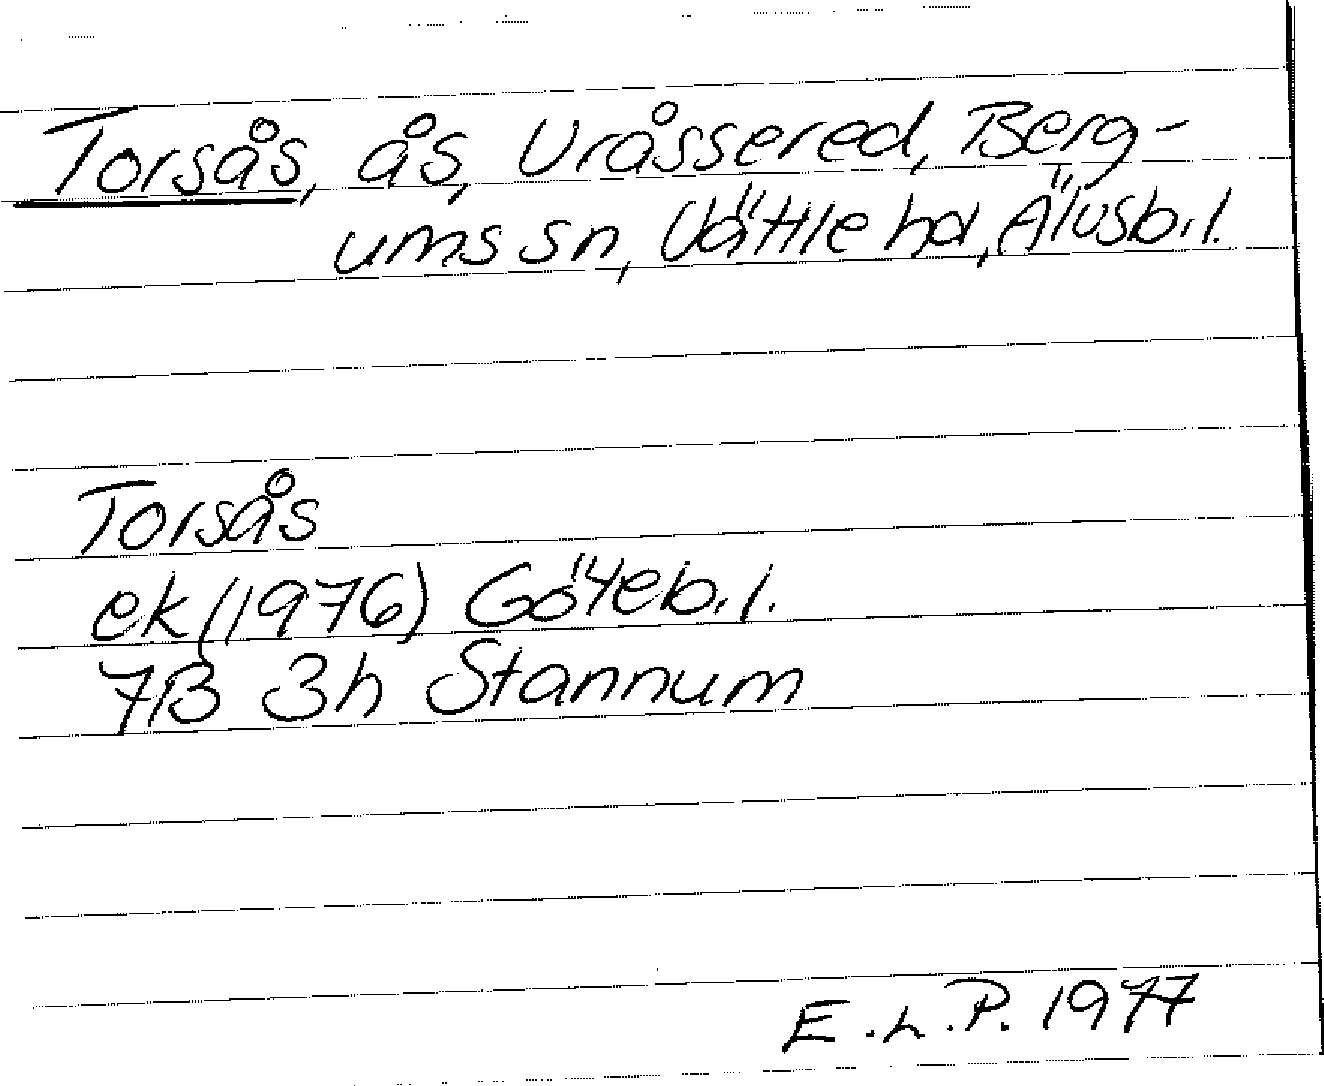 Torsås, ås, Uråssered, Berg-
ums sn, Vättle hd, Älvsb.l.
Torsås
ek (1976) Göteb.l.
7B 3h Stannum
E.L.P. 1977